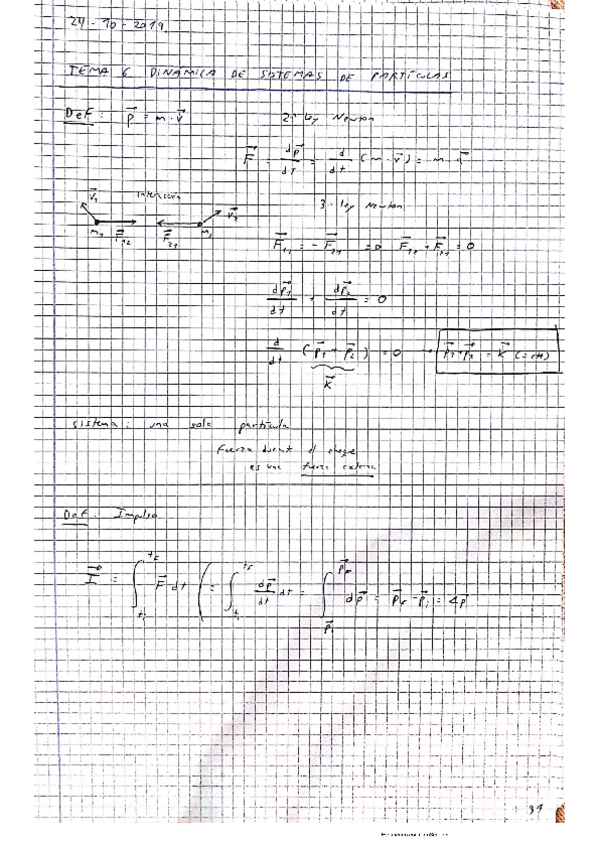 24-10-2019.
TEMA 6 DINÁMICA DE SISTEMAS DE PARTÍCULAS
Def: p⃗ = m · v⃗
2ª ley Newton
F⃗ = dp⃗/dt = d/dt (m · v⃗) = m · a⃗
v⃗₁ interacción v⃗₂
m₁ F⃗₁₂ F⃗₂₁ m₂
3ª ley Newton
F⃗₁₂ = - F⃗₂₁ => F⃗₁₂ + F⃗₂₁ = 0
dp⃗₁/dt + dp⃗₂/dt = 0
d/dt (p⃗₁ + p⃗₂) = 0 → p⃗₁ + p⃗₂ = K⃗ (= cte)
K⃗
sistema: una sola partícula
Fuerza durant el choque
es una fuerza externa
Def: Impulso
I⃗ = ∫_{tᵢ}^{t_F} F⃗ dt (= ∫_{tᵢ}^{t_F} dp⃗/dt dt = ∫_{p⃗ᵢ}^{p⃗_F} dp⃗ = p⃗_F - p⃗ᵢ = Δp⃗
31